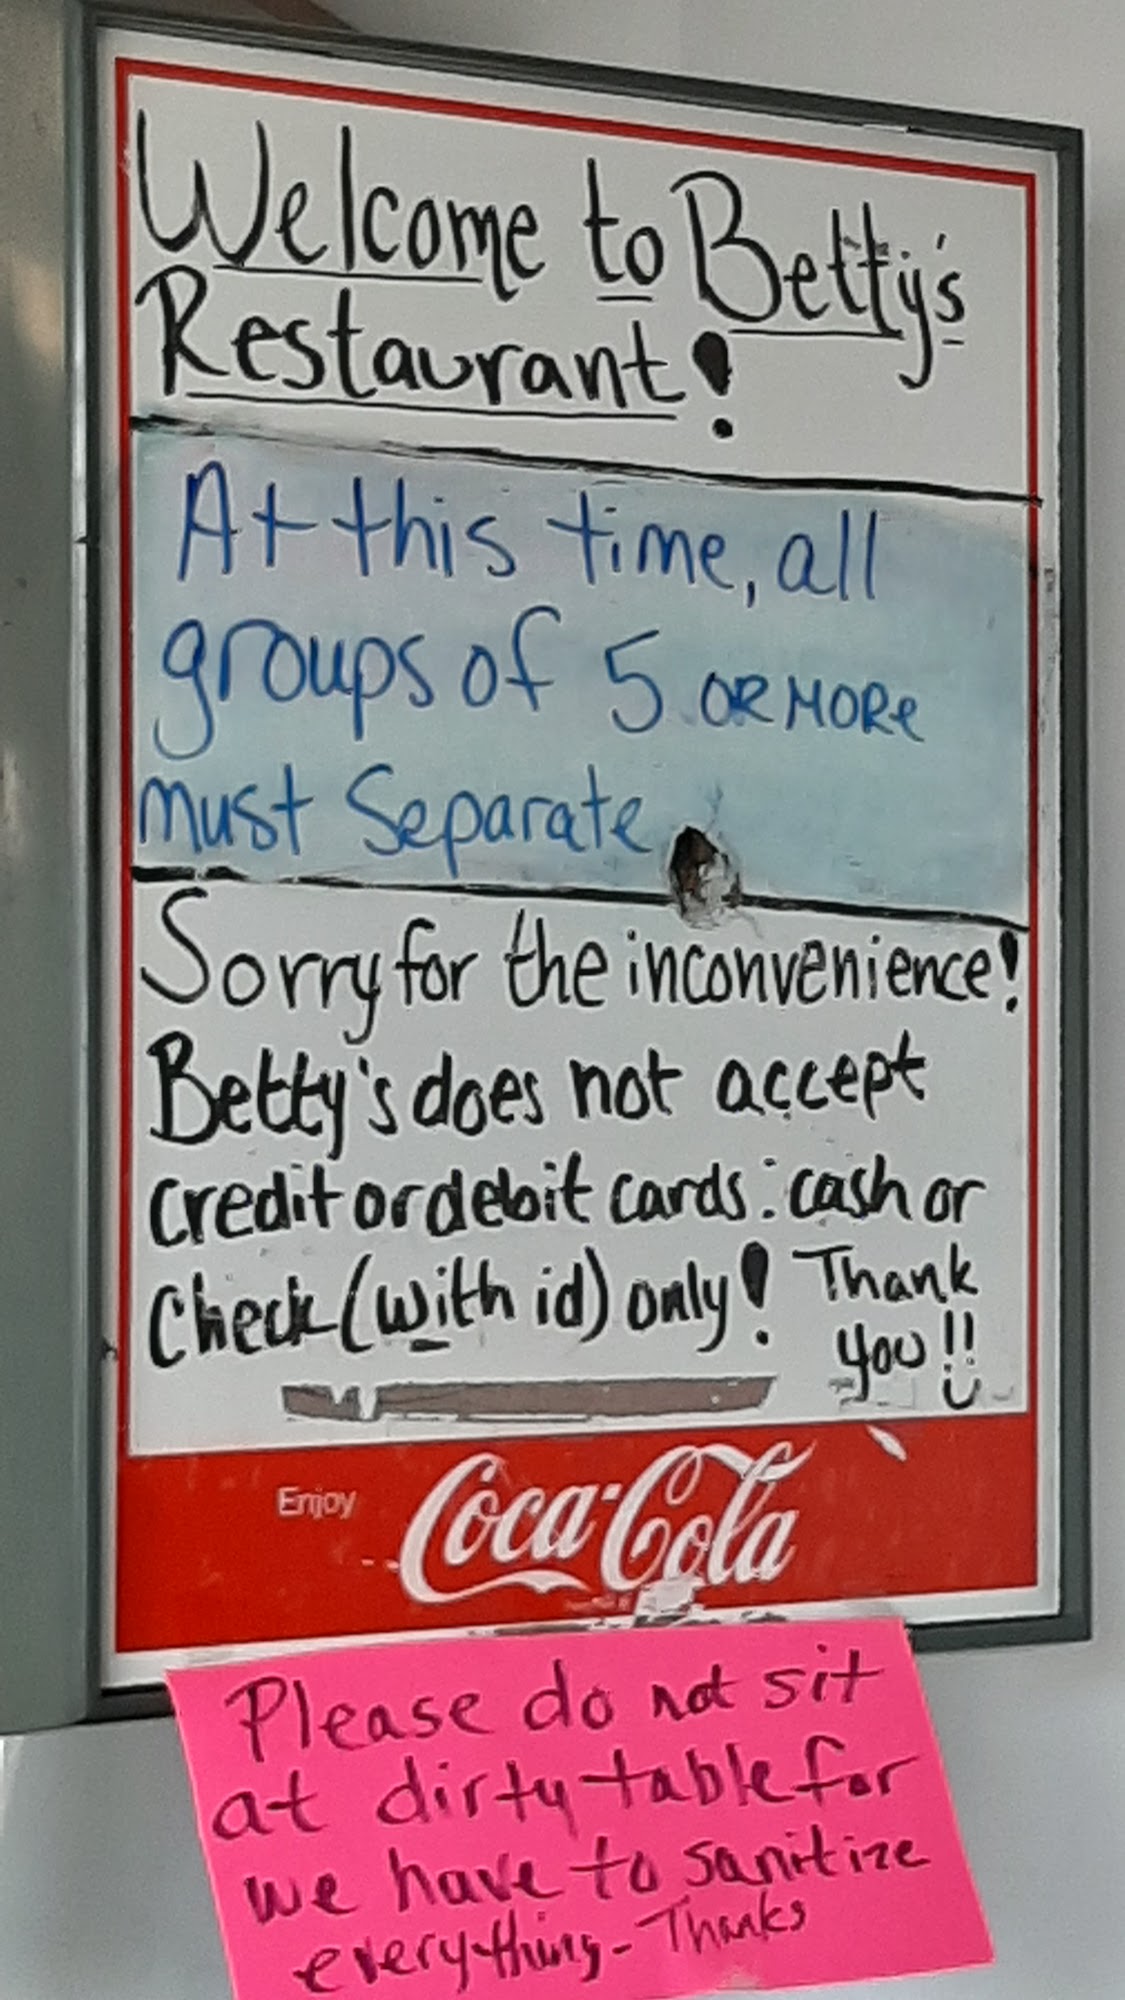 Welcome to Betty's
Restaurant!
At this time, all
groups of 5 OR MORe
must Separate
Sorry for the inconvenience!
Betty's does not accept
credit or debit cards: cash or
Check (with id) only! Thank
you!!
Enjoy Coca-Cola
Please do not sit
at dirty table for
we have to sanitize
everything - Thanks